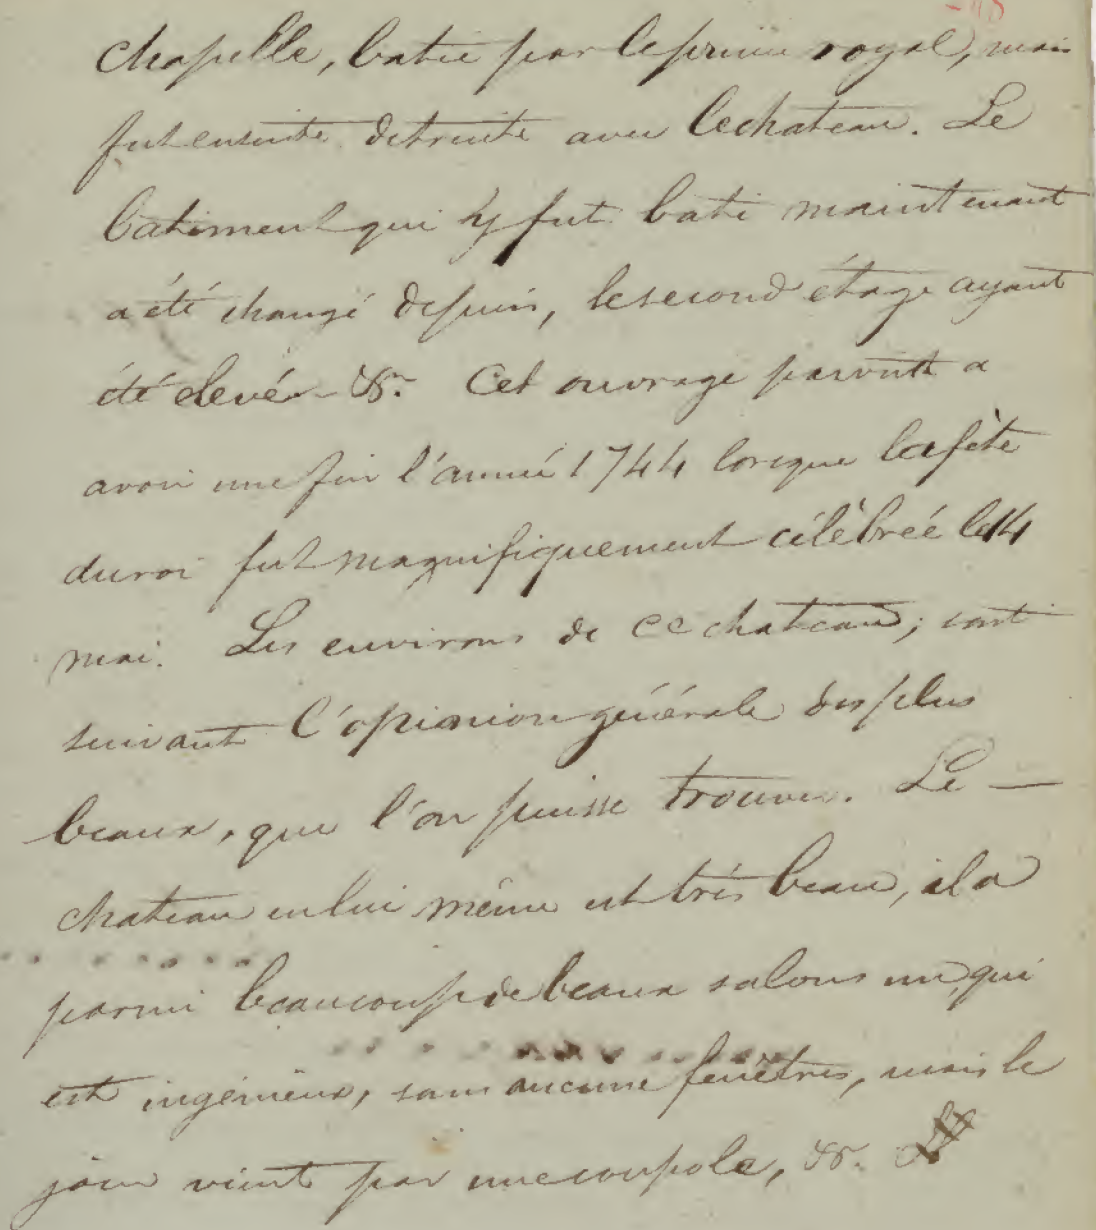 chapelle, batie par le prince royal, mais
fut ensuite detruite avec le chateau. Le
batiment qui y fut bati maintenant
a été changé depuis, le second étage ayant
été elevé - &c. Cet ouvrage parvint a
avoir une fin l'année 1744 lorsque la fète
du roi fut magnifiquement célébreé le 14
mai. Les environs de ce chateau; sont
suivant l'opinion générale des plus
beaux, que l'on puisse trouver. Le —
chateau en lui même est très beau, il a
parmi beaucoup de beaux salons un, qui
est ingénieux, sans aucune fenêtres, mais le
jour vient par une coupole, &c.